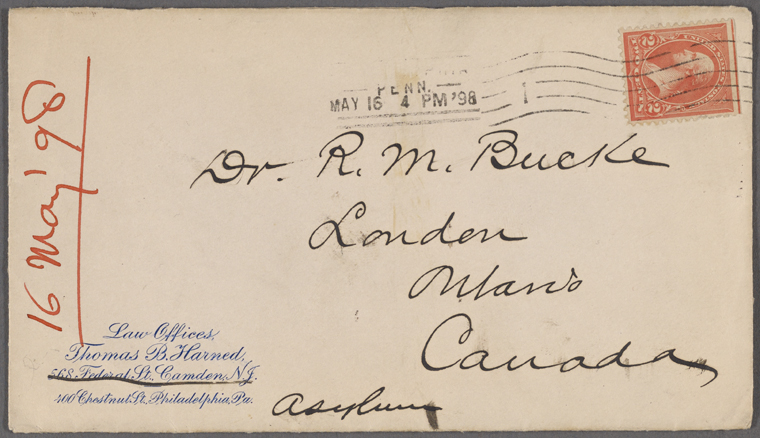 PENN.
MAY 16 4 PM '98
1
2 2
Dr. R. M. Bucke
London
Ontario
Canada
Asylum
16 May '98
Law Offices,
Thomas B. Harned,
568 Federal St. Camden, N.J.
400 Chestnut St. Philadelphia, Pa.